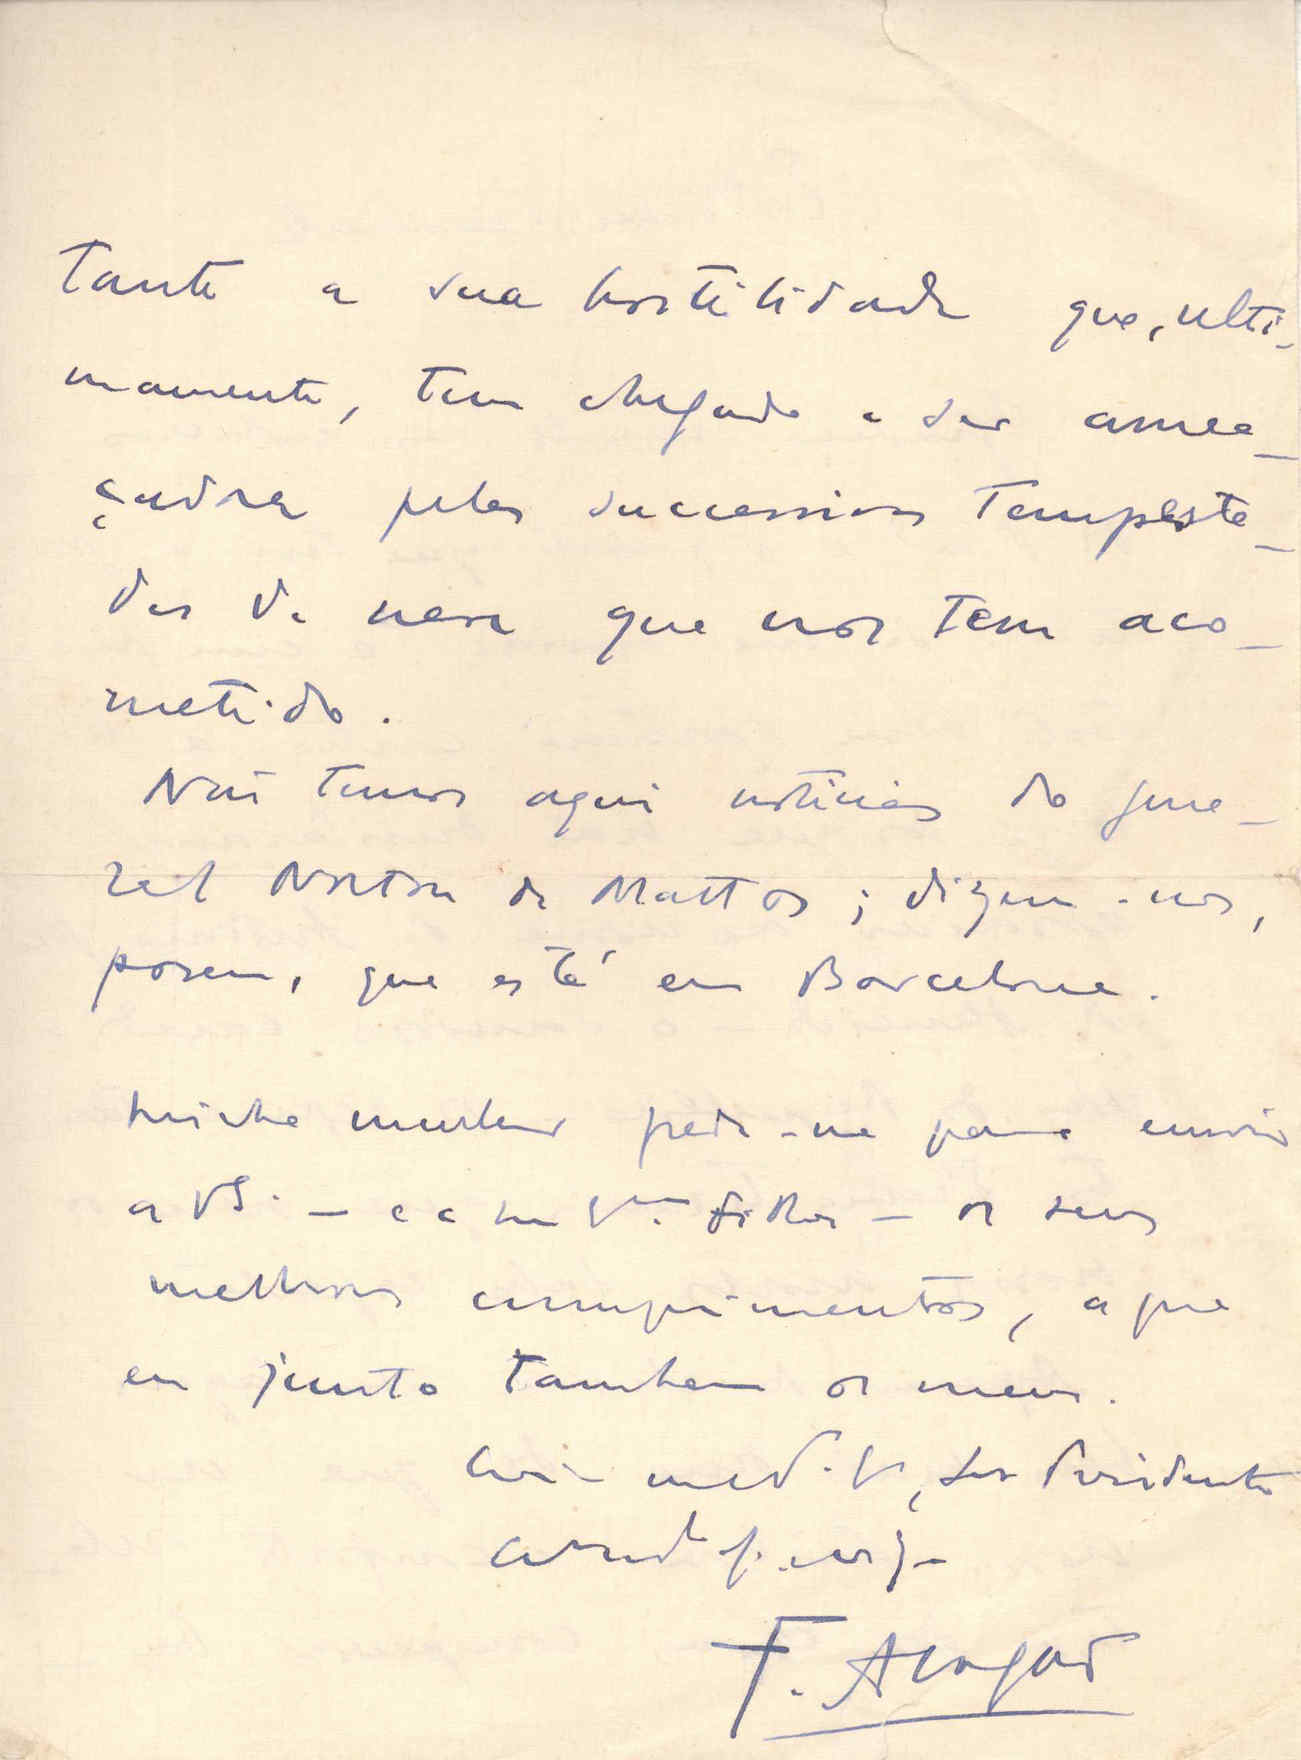 tante a sua hostilidade que, ulti-
mamente, tem chegado a ser amea-
çadora pelas successivas tempesta-
des de neve que nos tem aco-
metido.
Não temos aqui noticias do gene-
ral Norton de Mattos; dizem-nos,
porem, que está em Barcelona.
Minha mulher pede-me para enviar
a V. - e a sua filha - os seus
melhores cumprimentos, a que
eu junto tambem os meus.
Presidente